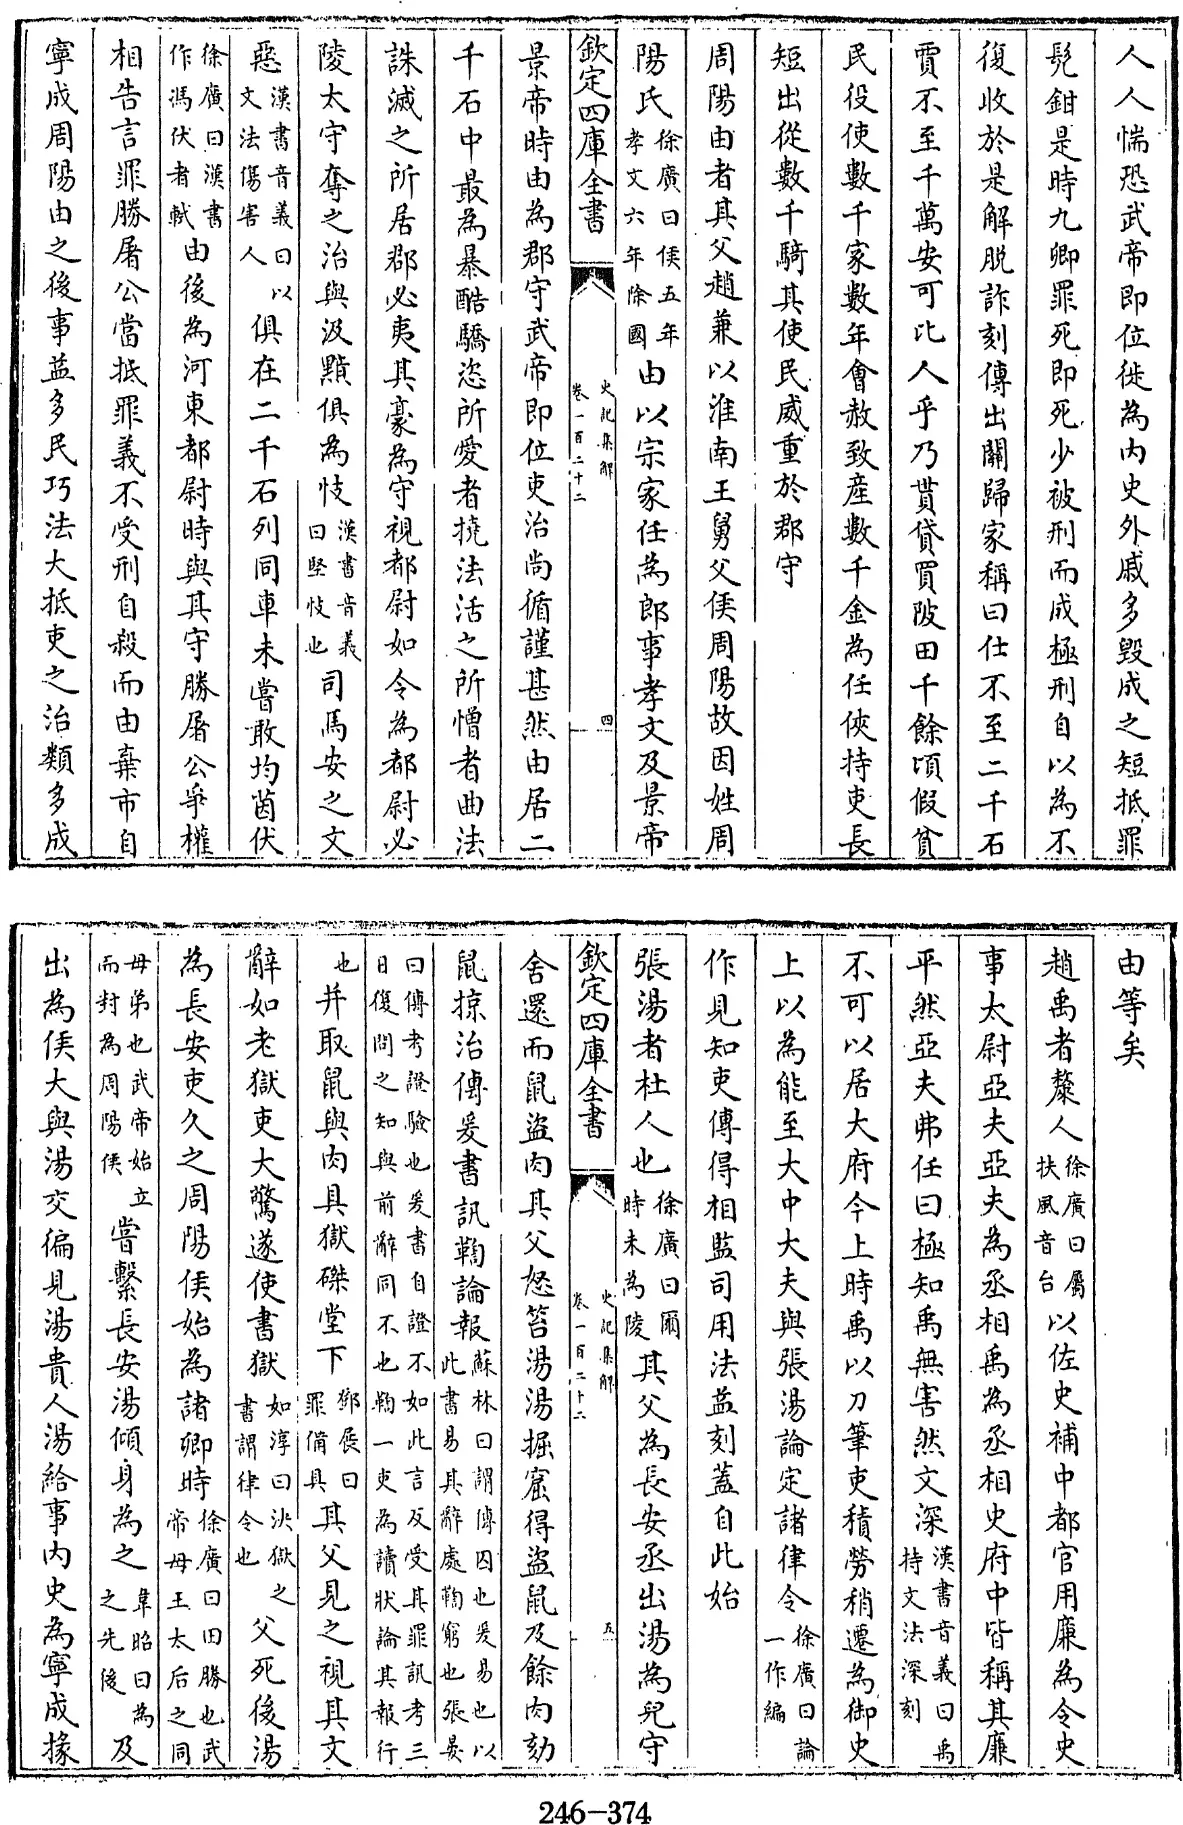 人人惴恐武帝即位徙為內史外戚多毀成之短抵罪
髠鉗是時九卿罪死即死少被刑而成極刑自以為不
復收於是解脫詐刻傳出關歸家稱曰仕不至二千石
賈不至千萬安可比人乎乃貰貸買陂田千餘頃假貧
民役使數千家數年會赦致產數千金為任俠持吏長
短出從數千騎其使民威重於郡守
周陽由者其父趙兼以淮南王舅父侯周陽故因姓周
陽氏徐廣曰侯五年孝文六年除國由以宗家任為郎事孝文及景帝
欽定四庫全書 史記集解 卷一百二十二 四
景帝時由為郡守武帝即位吏治尚循謹甚然由居二
千石中最為暴酷驕恣所愛者撓法活之所憎者曲法
誅滅之所居郡必夷其豪為守視都尉如令為都尉必
陵太守奪之治與汲黯俱為忮漢書音義曰堅忮也司馬安之文
惡漢書音義曰以文法傷害人俱在二千石列同車未嘗敢均茵伏
徐廣曰漢書作馮伏者軾由後為河東都尉時與其守勝屠公爭權
相告言罪勝屠公當抵罪義不受刑自殺而由棄市自
寧成周陽由之後事益多民巧法大抵吏之治類多成
由等矣
趙禹者斄人徐廣曰屬扶風音台以佐史補中都官用廉為令史
事太尉亞夫亞夫為丞相禹為丞相史府中皆稱其廉
平然亞夫弗任曰極知禹無害然文深漢書音義曰禹持文法深刻
不可以居大府今上時禹以刀筆吏積勞稍遷為御史
上以為能至大中大夫與張湯論定諸律令徐廣曰論一作編
作見知吏傳得相監司用法益刻蓋自此始
張湯者杜人也徐廣曰爾時未為陵其父為長安丞出湯為兒守
欽定四庫全書 史記集解 卷一百二十二 五
舍還而鼠盜肉其父怒笞湯湯掘窟得盜鼠及餘肉劾
鼠掠治傳爰書訊鞫論報蘇林曰謂傳囚也爰易也以此書易其辭處鞫窮也張晏
曰傳考證驗也爰書自證不如此言反受其罪訊考三日復問之知與前辭同不也鞫一吏為讀狀論其報行
也并取鼠與肉具獄磔堂下鄧展曰罪備具其父見之視其文
辭如老獄吏大驚遂使書獄如淳曰決獄之書謂律令也父死後湯
為長安吏久之周陽侯始為諸卿時徐廣曰田勝也武帝母王太后之同
母弟也武帝始立而封為周陽侯嘗繫長安湯傾身為之韋昭曰為之先後及
出為侯大與湯交徧見湯貴人湯給事內史為寧成掾
246-374